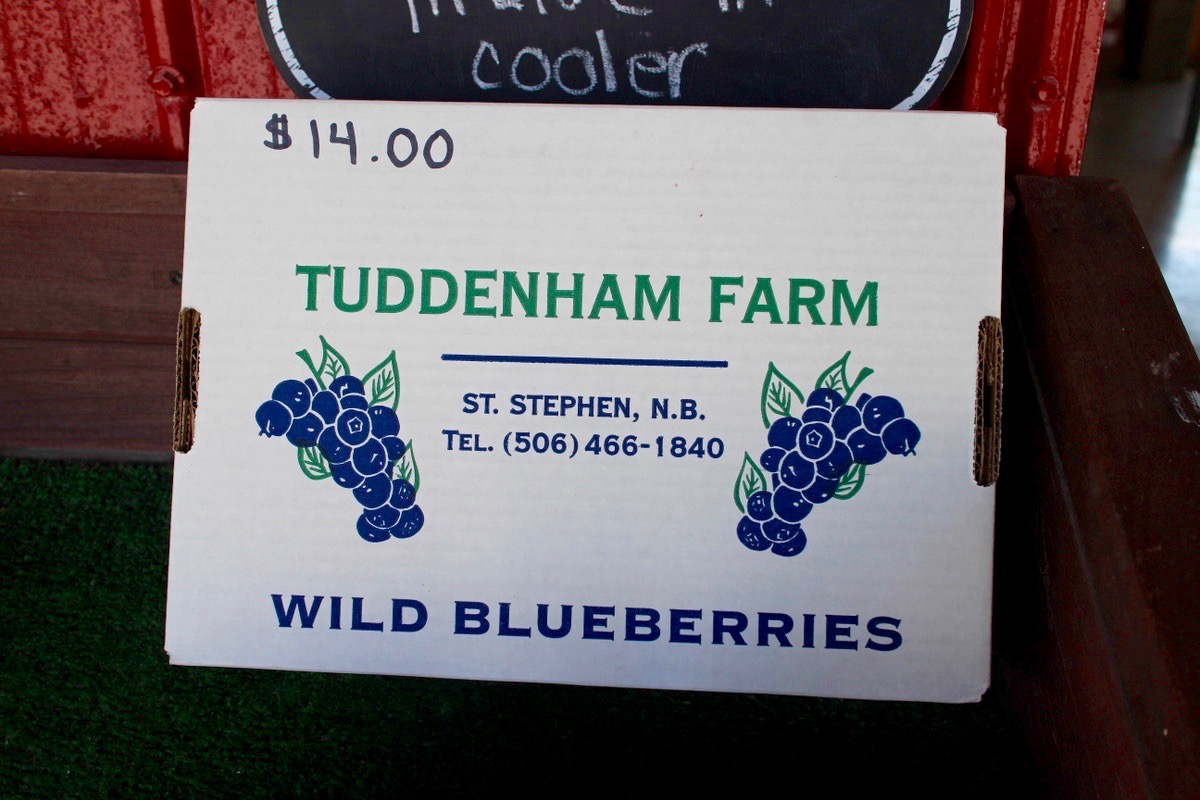 cooler
$14.00
TUDDENHAM FARM
ST. STEPHEN, N.B.
TEL. (506) 466-1840
WILD BLUEBERRIES